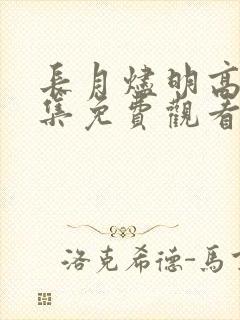 長月燼明高
集免費觀看
洛克希德-馬丁